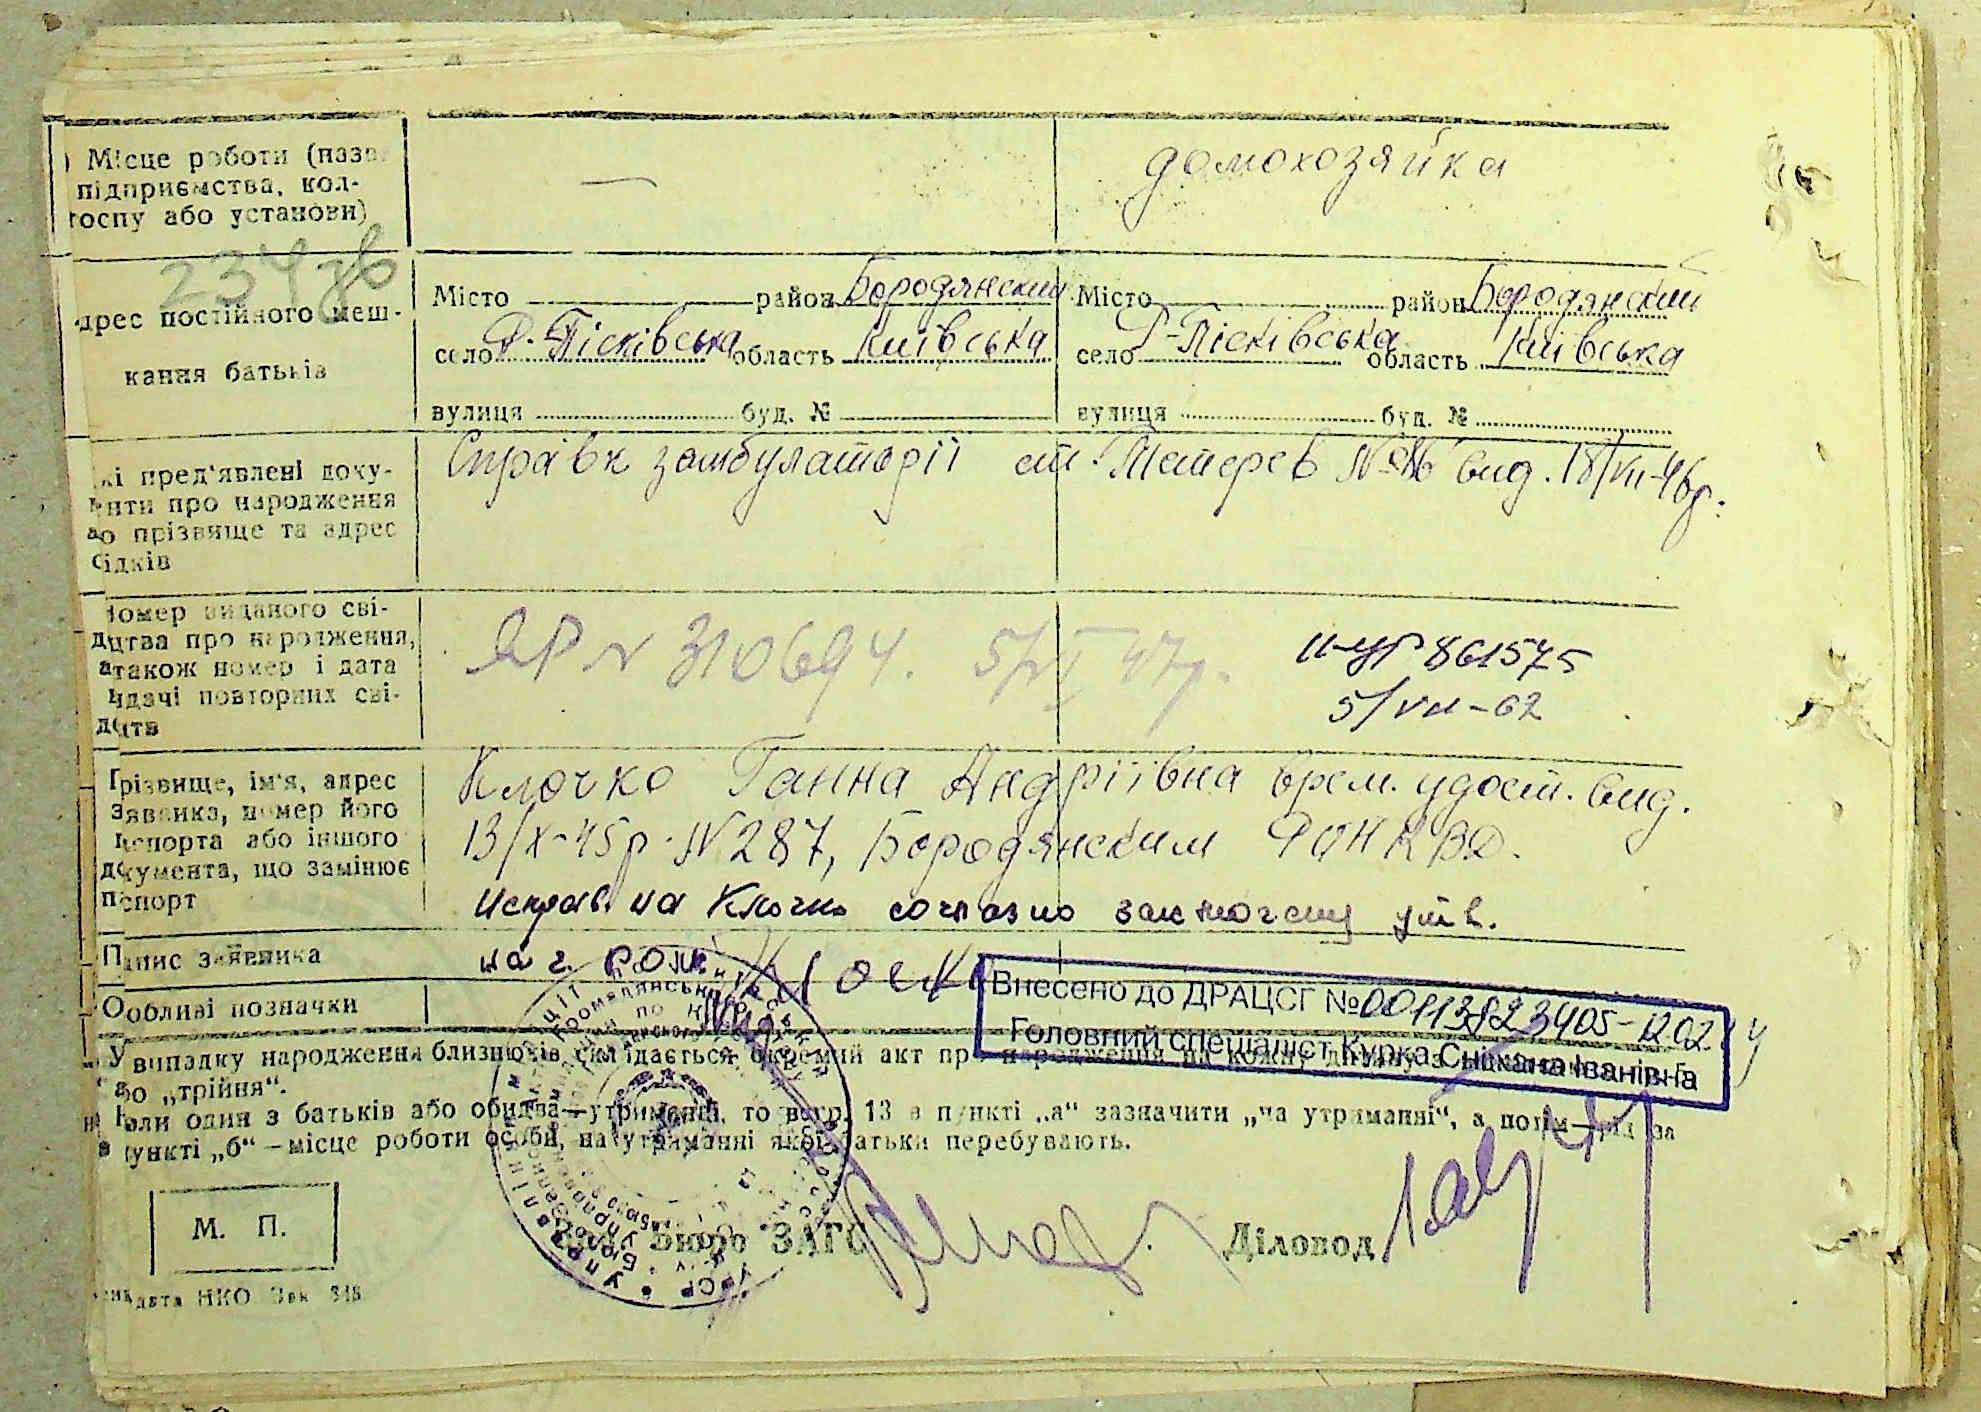 ) Місце роботи (назв
підприємства, кол-
госпу або установи)
—
домохозяйка
234 зв
дрес постійного меш-
кання батьків
Місто район Бородянский
село Р-Пісківська область Київська
вулиця буд. №
Місто район Бородянский
село Р-Пісківська область Київська
вулиця буд. №
кі пред'явлені доку-
енти про народження
бо прізвище та адрес
свідків
Справк замбулаторії ст. Тетерев вид. 18/VII-46р.
Номер виданого сві-
дцтва про народження,
а також номер і дата
видачі повторних сві-
доцтв
ЯР N 310694. 5/VI 47р.
II-УР 861575
5/VII-62
Прізвище, ім'я, адрес
заявника, номер його
паспорта або іншого
документа, що замінює
паспорт
Клочко Ганна Андріївна врем. удост. вид.
13/X-45р. N 287, Бородянским РОНКВД.
Исправ. на Клочко согласно заключению утв.
Підпис заявника
Особливі позначки
Внесено до ДРАЦСГ №
Головний спеціаліст Курка Сніжана Іванівна
У випадку народження близнюків складається окремий акт про народження на кожну дитину з
або „трійня“.
Коли один з батьків або обидва—утриманці, то в гр. 13 в пункті „а“ зазначити „на утриманні“, а потім за
в пункті „б“ – місце роботи особи, на утриманні якої батьки перебувають.
М. П.
Зав. Бюро ЗАГС
Діловод
НКО Зак 348